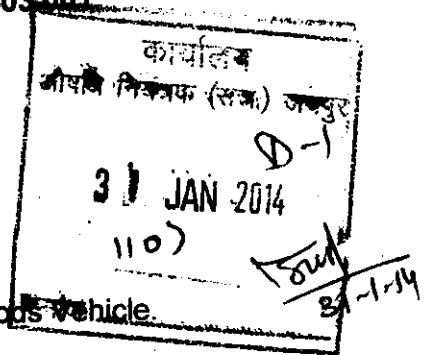 कार्यालय
औषधि नियंत्रक (राज.) जयपुर
D-1
31 JAN 2014
110)
31-1-14
ods Vehicle.